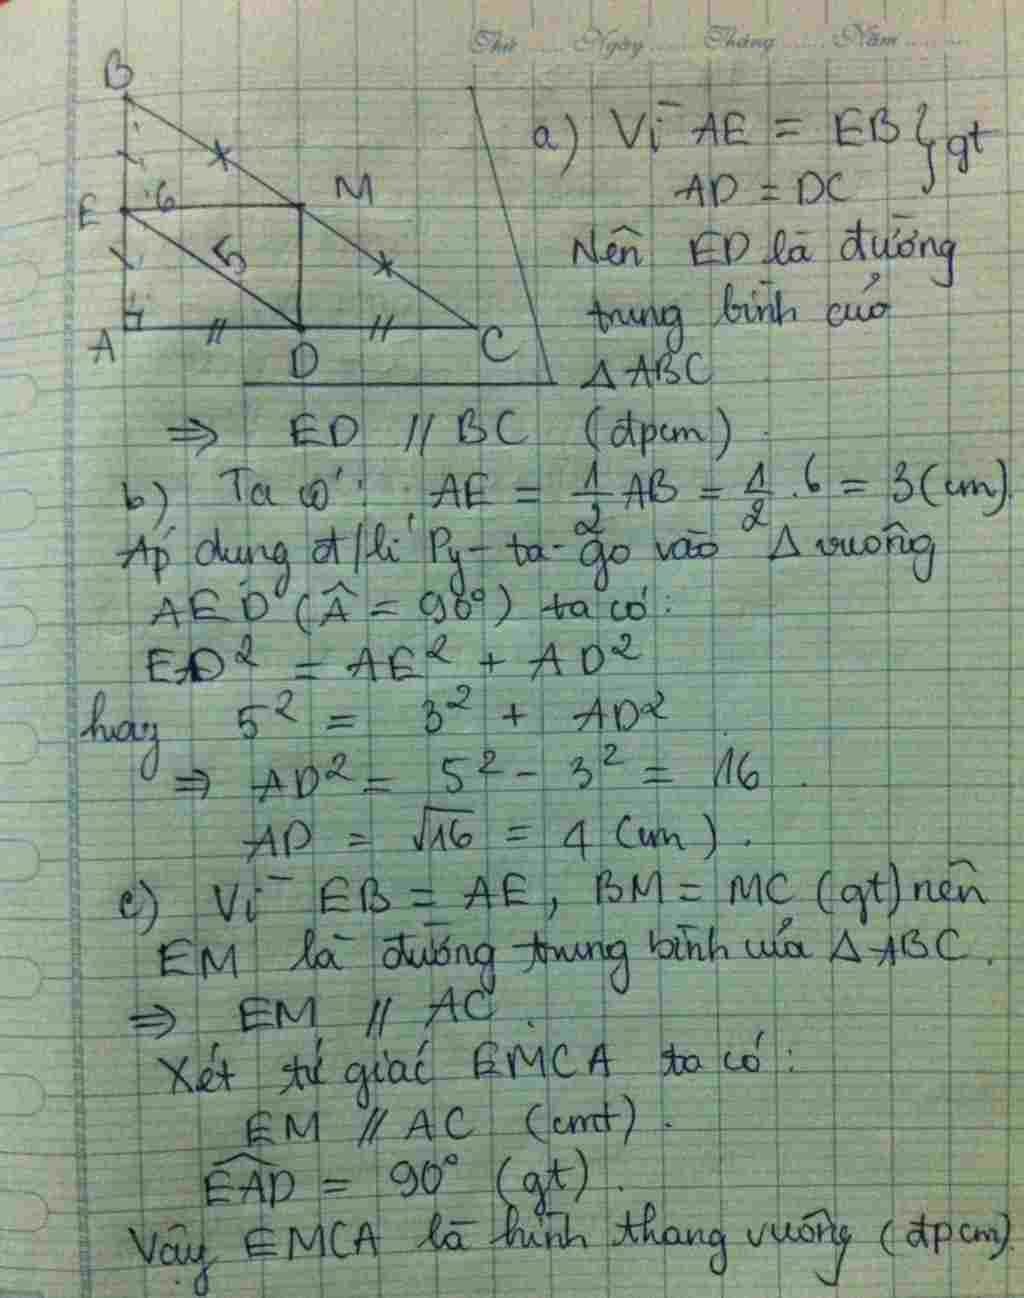 Thứ ...... Ngày ...... Tháng ...... Năm ......
B
E
6
M
5
A
D
C
a) Vì AE = EB } gt
AD = DC
Nên ED là đường
trung bình cuả
Δ ABC
⇒ ED // BC (đpcm).
b) Ta có: AE = 1/2 AB = 1/2 . 6 = 3 (cm).
Áp dụng đ/lí Py-ta-go vào Δ vuông
AED (Â = 90°) ta có:
ED² = AE² + AD²
hay 5² = 3² + AD²
⇒ AD² = 5² - 3² = 16.
AD = √16 = 4 (cm).
c) Vì EB = AE, BM = MC (gt) nên
EM là đường trung bình của Δ ABC.
⇒ EM // AC.
Xét tứ giác EMCA ta có:
EM // AC (cmt).
∠EAD = 90° (gt).
Vậy EMCA là hình thang vuông (đpcm).